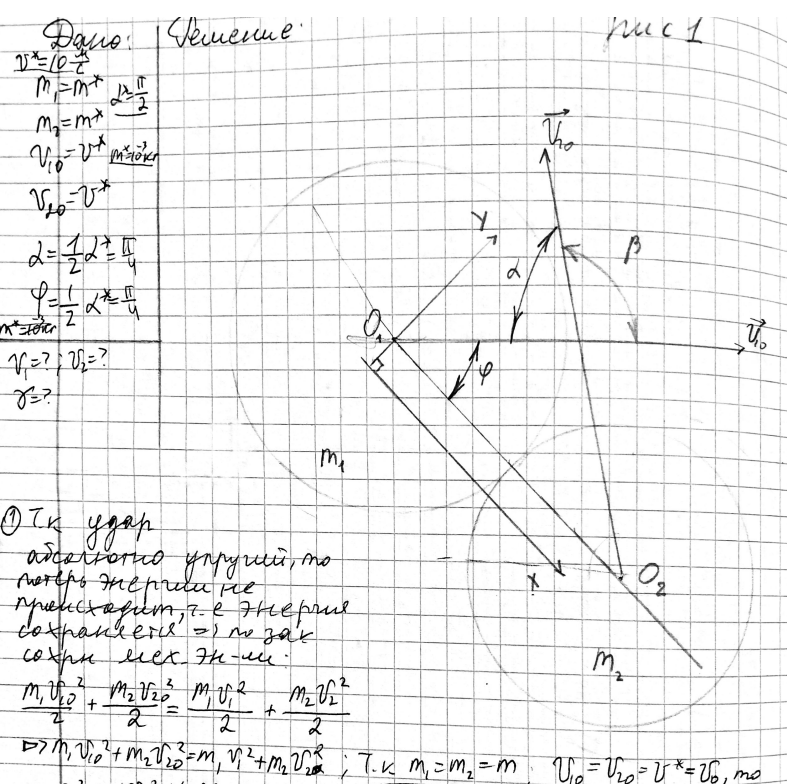 Дано: Решение: рис 1
v*=10 м/с
m₁=m* α*=π/2
m₂=m*
v₁₀=v* m*=10⁻³кг
v₂₀=v*
α=1/2 α*=π/4
φ=1/2 α*=π/4
v₁=?; v₂=?
γ=?
v₂₀
Y
α
β
O₁
v₁₀
φ
m₁
X
O₂
m₂
① Т.к удар
абсолютно упругий, то
потерь энергии не
происходит, т.е энергия
сохраняется => по зак
сохрн мех. эн-ии:
m₁v₁₀²/2 + m₂v₂₀²/2 = m₁v₁²/2 + m₂v₂²/2
=> m₁v₁₀²+m₂v₂₀²=m₁v₁²+m₂v₂²; Т.к m₁=m₂=m v₁₀=v₂₀=v*=v₀, то